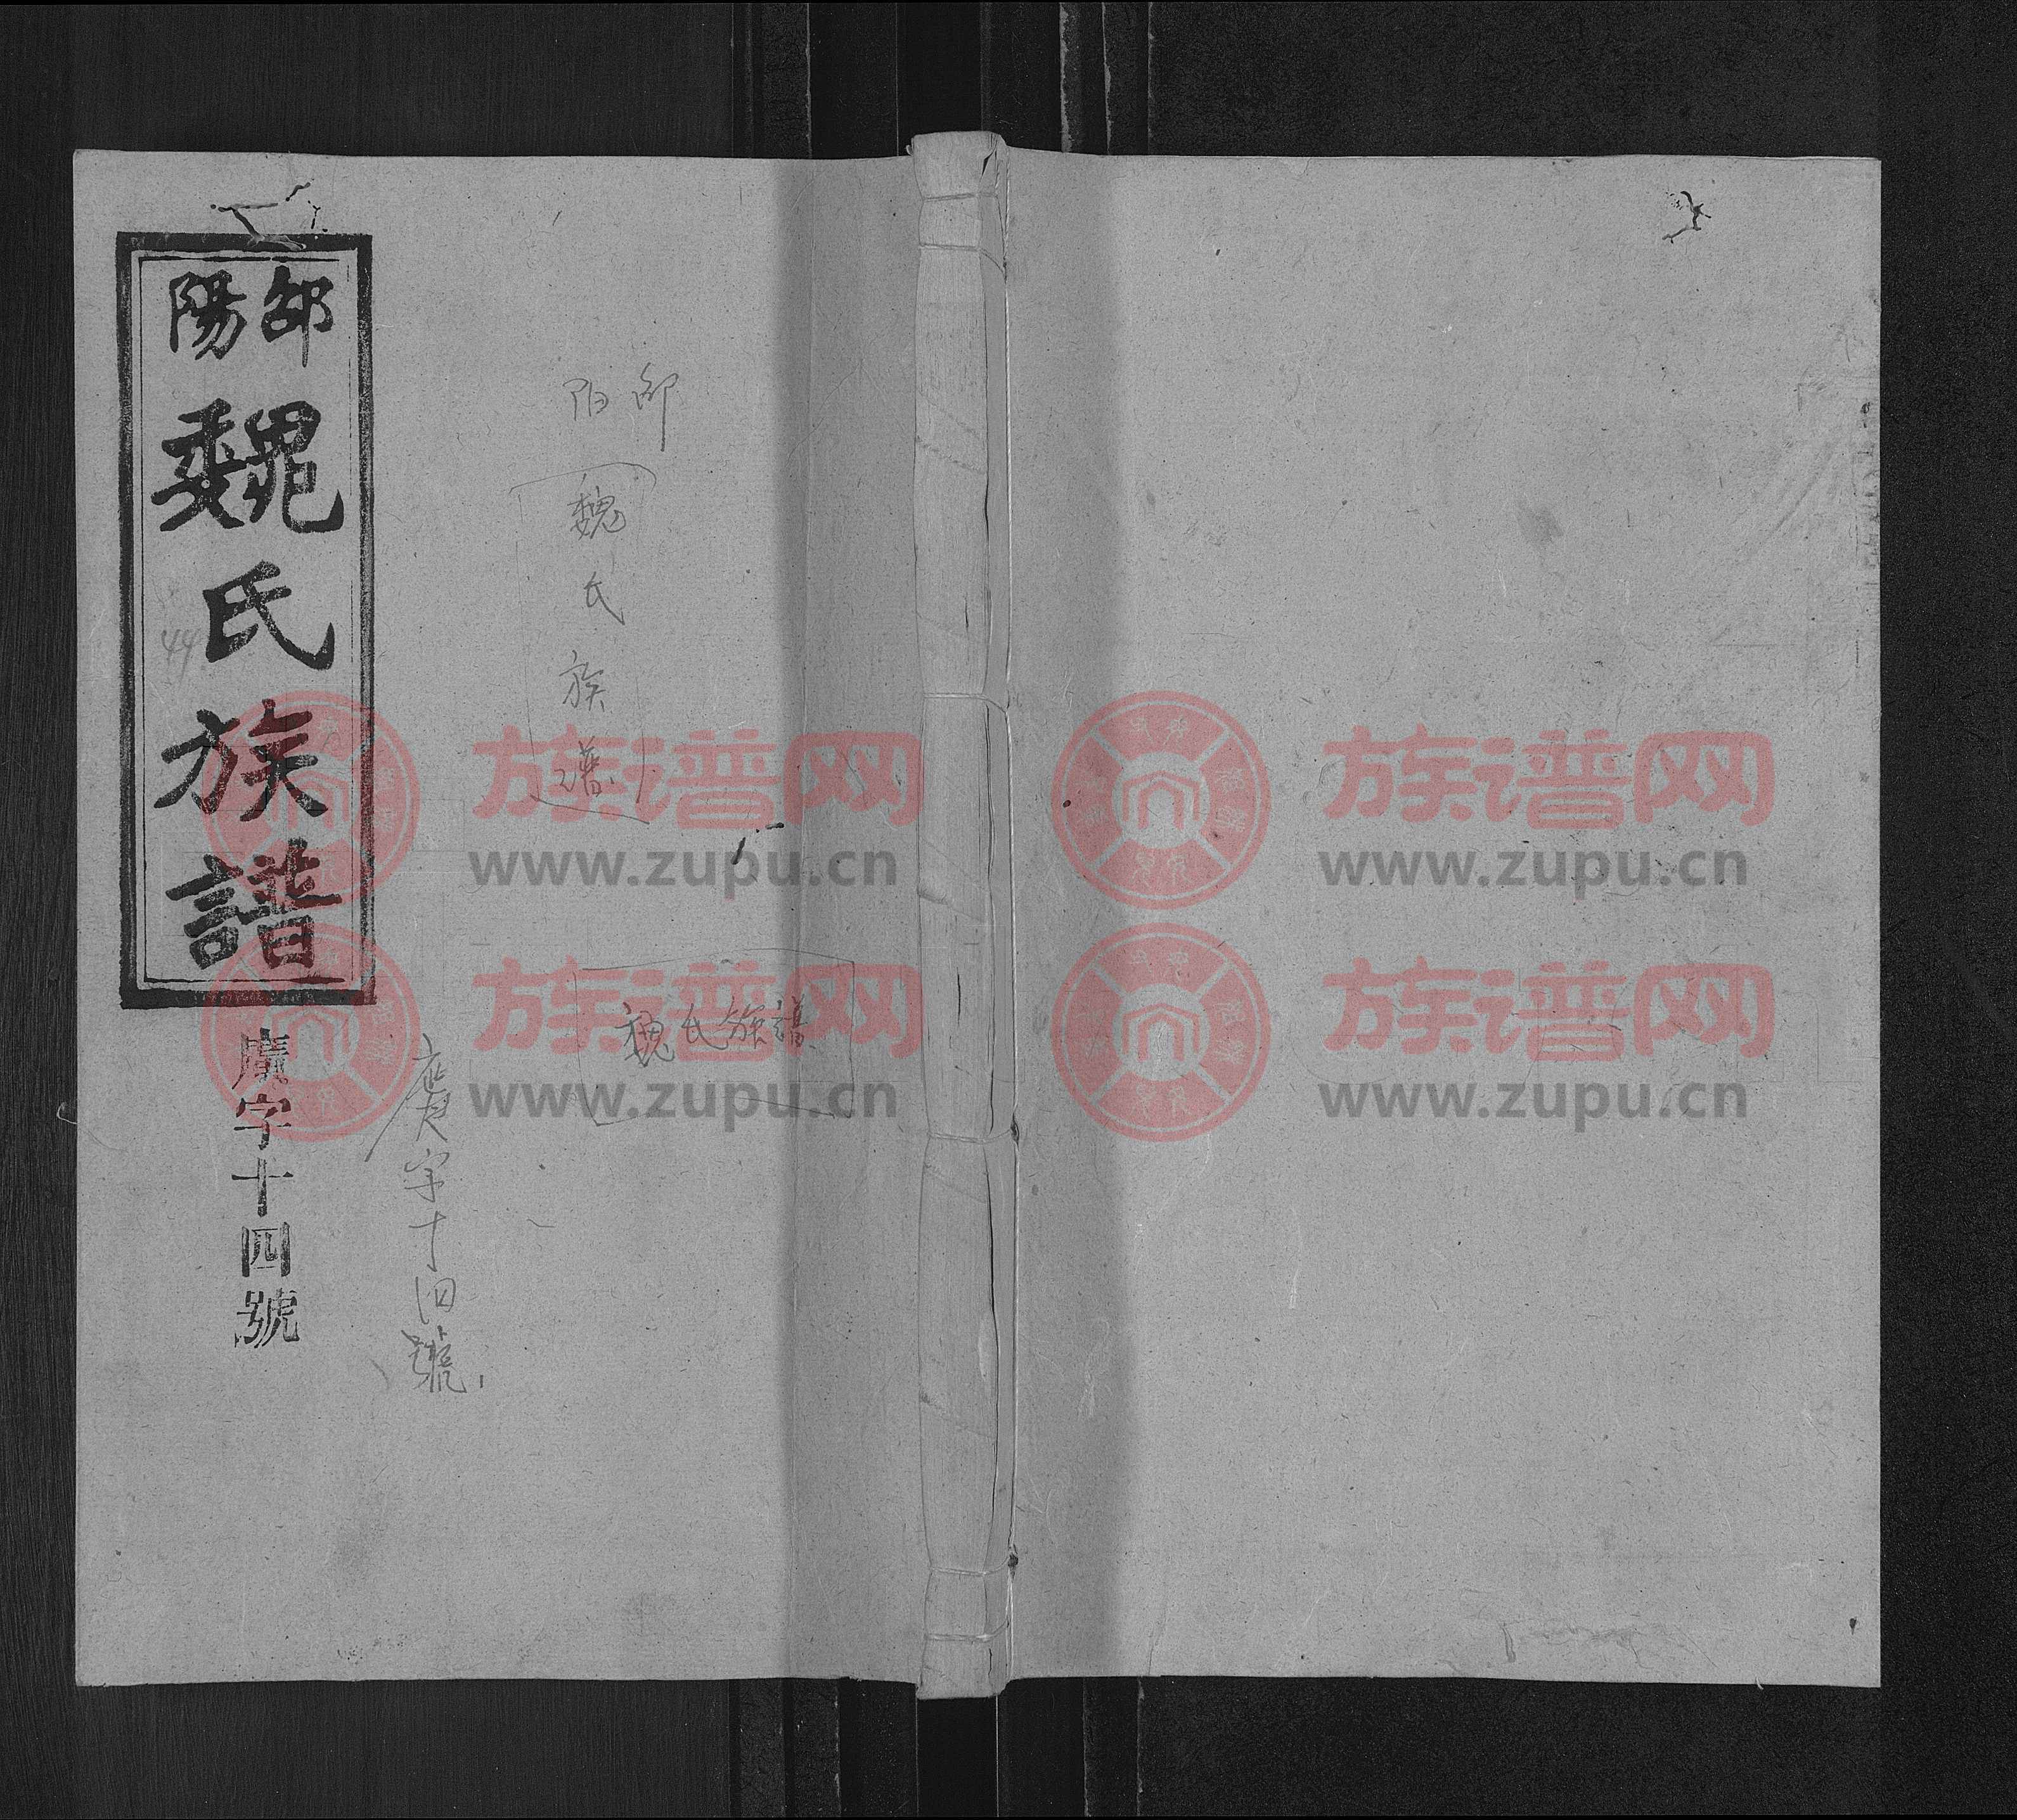 邵陽
魏氏族譜
廣字十四號
邵阳
魏氏族譜
魏氏族譜
字十四號
44
族谱网
www.zupu.cn
族谱网
www.zupu.cn
族谱网
www.zupu.cn
族谱网
www.zupu.cn